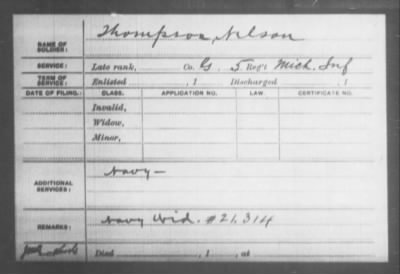 Thompson, Nelson
NAME OF SOLDIER:
SERVICE: Late rank, Co. G, 5 Reg't Mich. Inf
TERM OF SERVICE: Enlisted , 1 Discharged , 1
DATE OF FILING: CLASS. APPLICATION NO. LAW. CERTIFICATE NO.
Invalid,
Widow,
Minor,
ADDITIONAL SERVICES: Navy—
REMARKS: Navy Wid. #21.314
Died , 1 , at